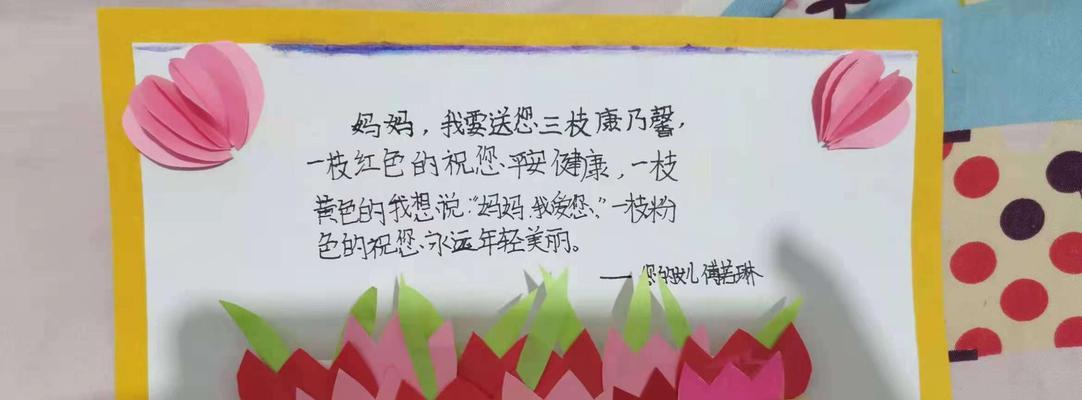 妈妈，我要送您三枝康乃馨，
一枝红色的祝您、平安健康，一枝
黄色的我想说：“妈妈，我爱您、”一枝粉
色的祝您、永远年轻美丽。
——您的女儿傅若琳